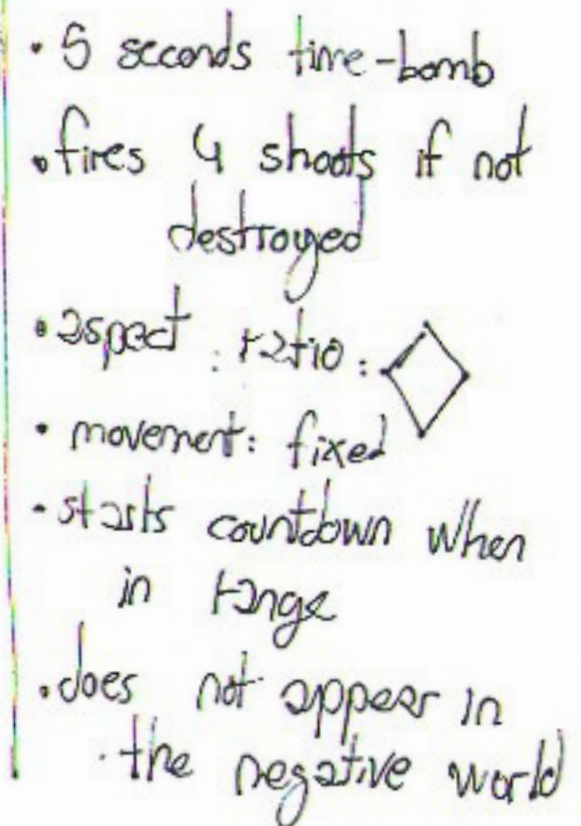 • 5 seconds time-bomb
• fires 4 shoots if not
destroyed
• aspect : ratio :
• movement: fixed
• starts countdown when
in range
• does not appear in
the negative world